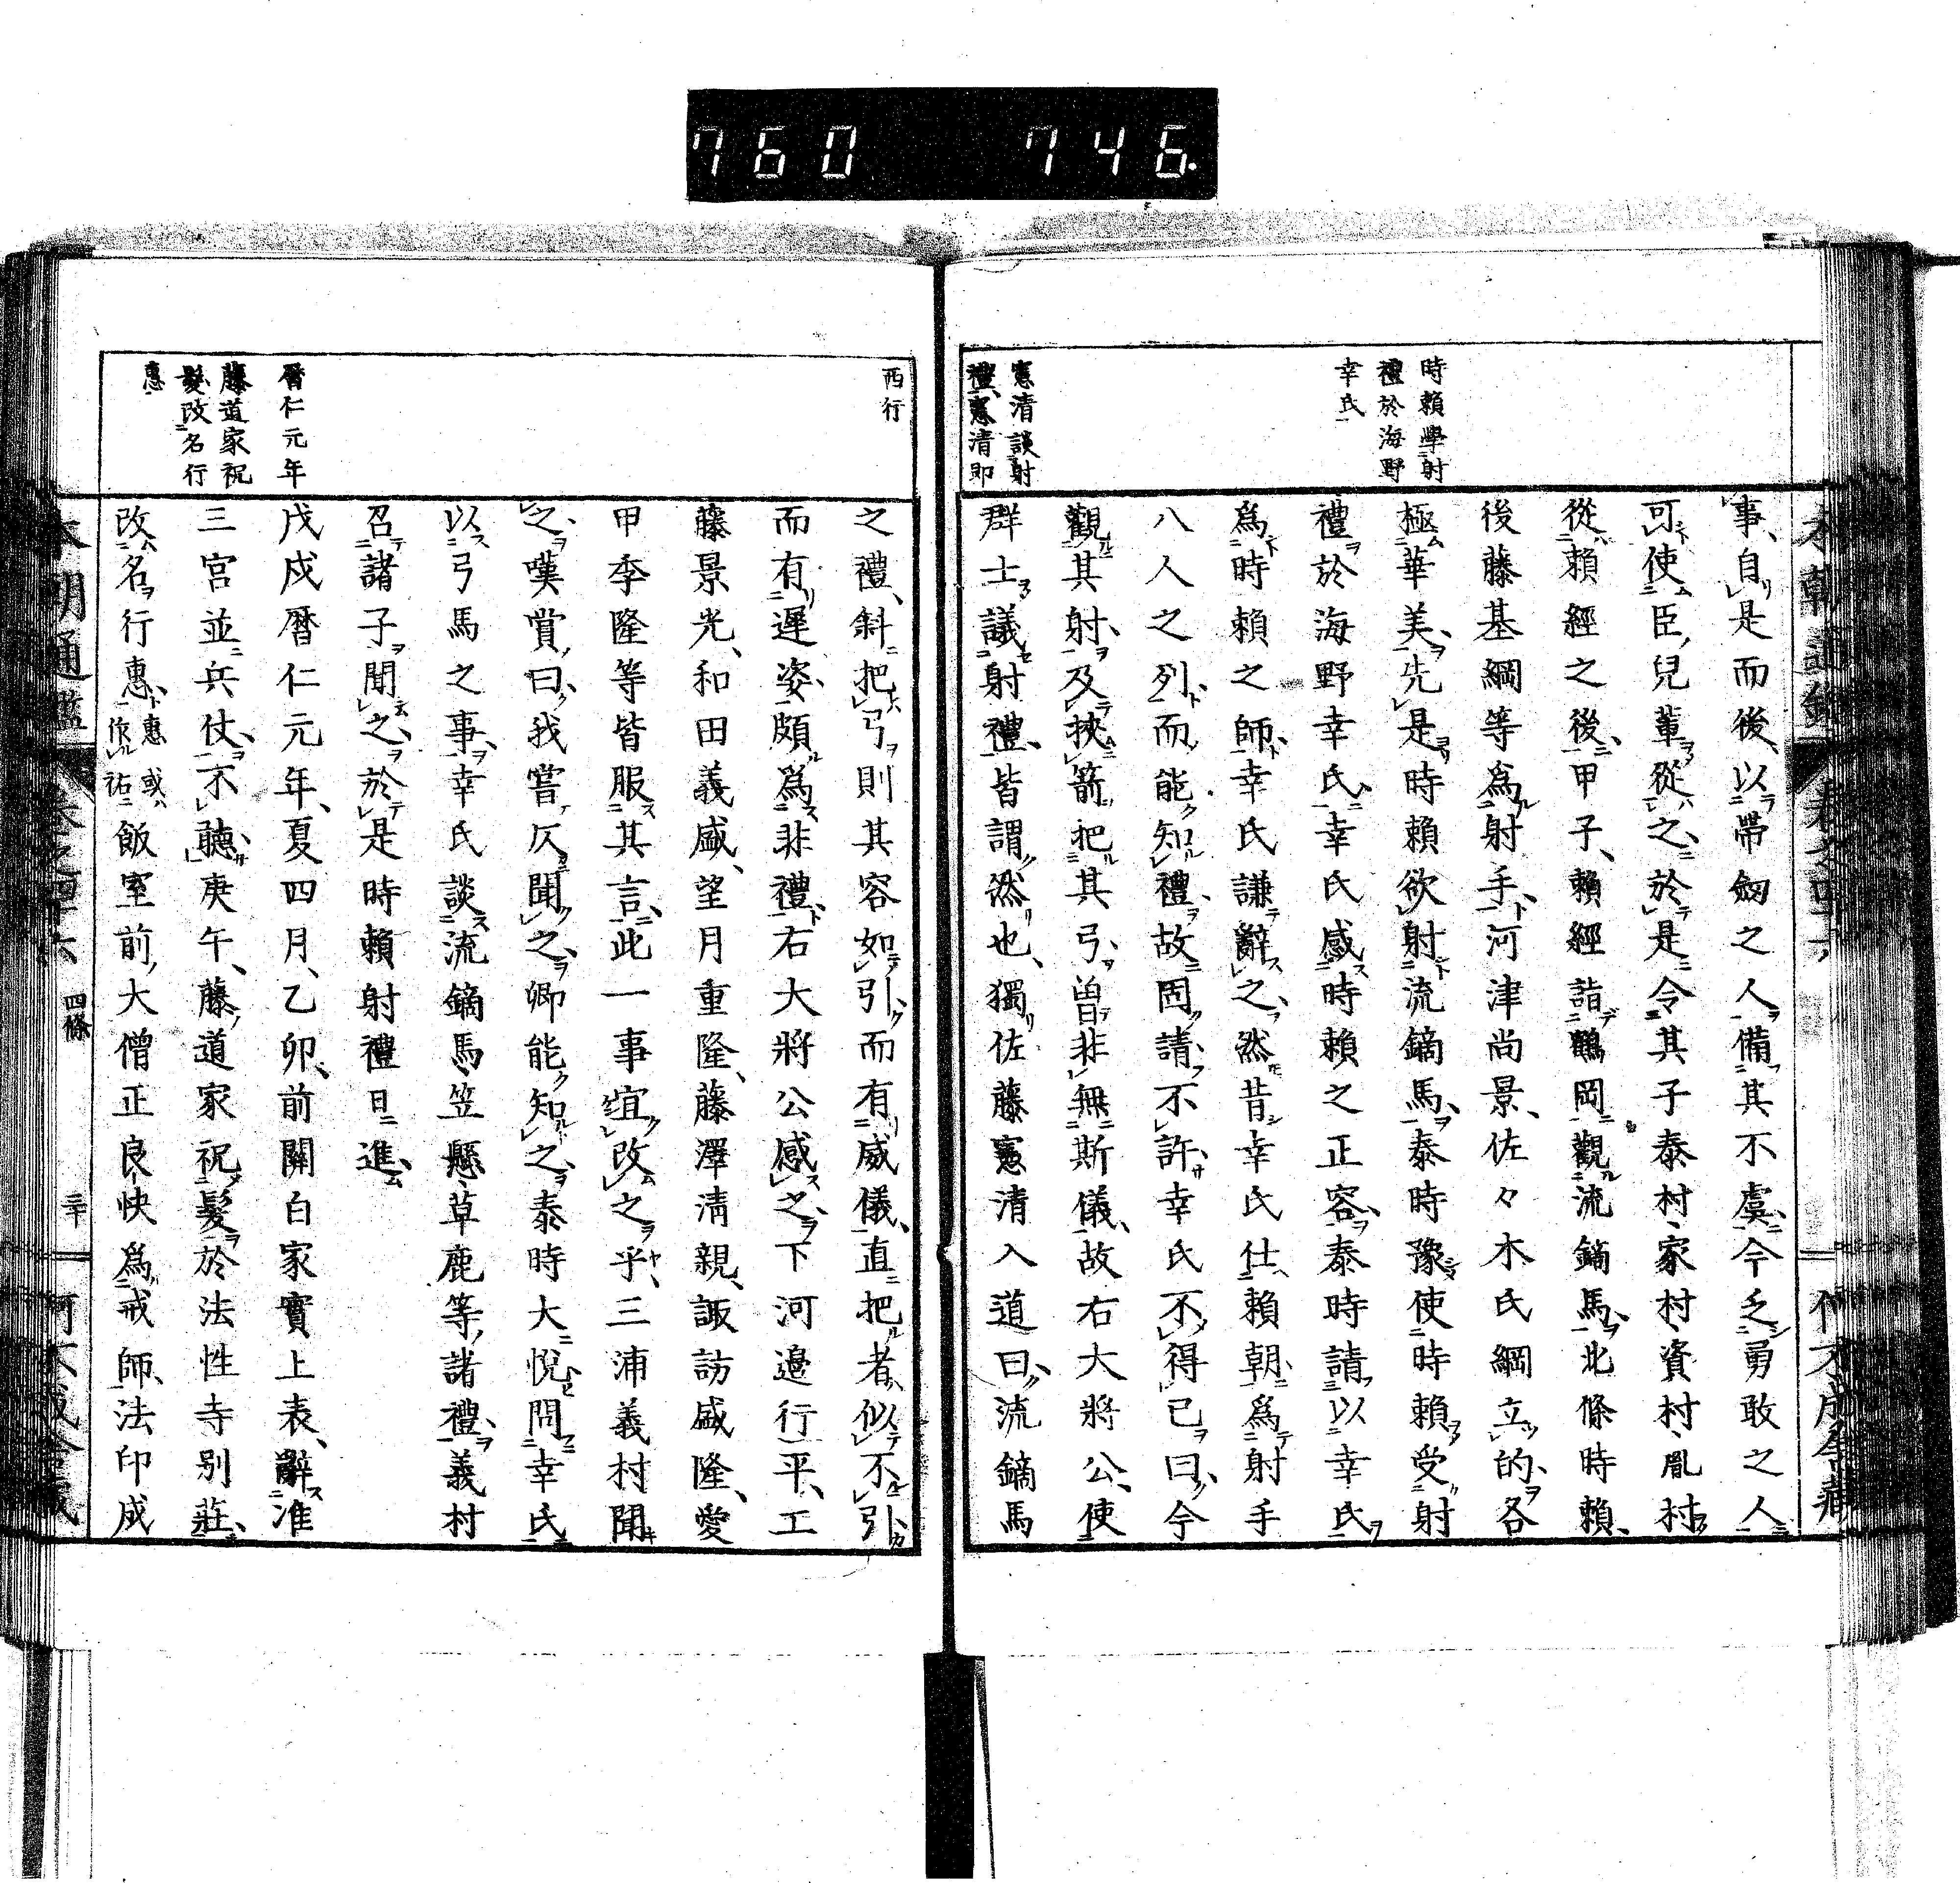 760 746.
時賴學射
禮於海野
幸氏
憲清談射
禮憲清即
事、自是而後、以帶劒之人備其不虞、今乏勇敢之人
可使臣兒輩從之、於是令其子泰村、家村、資村、胤村
從、賴經之後、甲子、賴經詣鶴岡觀流鏑馬、北條時賴、
後藤基綱等爲射手、河津尚景、佐々木氏綱立的、各
極華美、先是時賴欲射流鏑馬、泰時豫使時賴受射
禮於海野幸氏、幸氏感時賴之正容、泰時請以幸氏
爲時賴之師、幸氏謙辭之、然昔幸氏仕賴朝、爲射手
八人之列、而能知禮、故固請、不許、幸氏不得已曰、今
觀其射、及挾箭把其弓、曽非無斯儀、故右大將公、使
群士議射禮、皆謂然也、獨佐藤憲清入道曰、流鏑馬
西行
曆仁元年
藤道家祝
髮改名行
惠
之禮、斜把弓則其容如引而有威儀、直把者似不引
而有遲姿、頗爲非禮、右大將公感之、下河邉行平、工
藤景光、和田義盛、望月重隆、藤澤淸親、諏訪盛隆、愛
甲季隆等皆服其言、此一事宜改之乎、三浦義村聞
之、嘆賞曰、我嘗仄聞之、卿能知之、泰時大悅問幸氏
以弓馬之事、幸氏談流鏑馬、笠懸、草鹿等、諸禮、義村
召諸子聞之、於是時賴射禮日進
戊戍曆仁元年、夏四月、乙卯、前關白家實上表、辭准
三宮並兵仗、不聽、庚午、藤道家祝髮於法性寺別莊、
改名行惠、惠或作祐飯室前大僧正良快爲戒師、法印成
本朝通鑑 卷之四十六 四條 三十